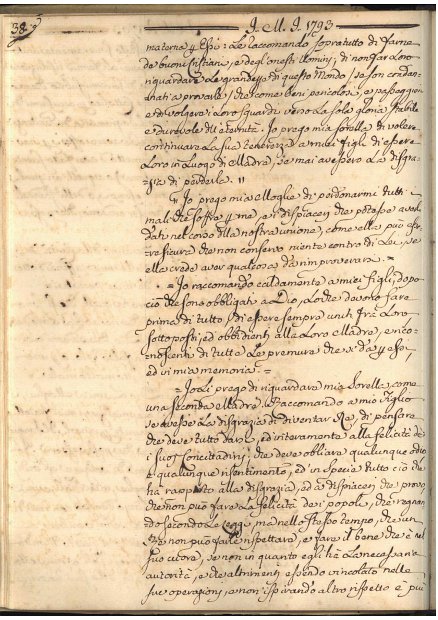 38
J. M. J. 1793
materno p Essi: Le raccomando sopratutto di farne
de buoni Cristiani, e degl'onesti Uomini; di non far Loro
riguardare Le grandezze di questo Mondo (se son condan-
nati a provarle) che come beni pericolosi, e passeggieri
e di volgere i Loro sguardi verso La sola gloria stabile
e durevole dell'eternità. Io prego mia sorella di volere
continuare La sua tenerezza a miei figli, di essere
Loro in Luogo di Madre, se mai avessero La disgra-
zia di perderla. "
" Io prego mia Moglie di perdonarmi tutti
mali che soffre p me, e i dispiaceri che potessi aver
dati nel corso della nostra unione, com'ella può esser
sicura che non conservo niente contro di Lei, se
ella crede aver qualcosa da rimproverarsi. "
= Io raccomando caldamente a miei figli, dopo
ciò che sono obbligati a Dio, Lo che devono fare
prima di tutto, di essere sempre uniti frà Loro
sottoposti, ed obbidienti alla Loro Madre, e rico-
noscenti di tutte Le premure che si dà p essi,
ed in mia memoria. =
= Io Li prego di riguardare mia Sorella come
una seconda Madre. Raccomando a mio Figlio
se avesse La disgrazia di diventar Rè, di pensare
che deve tutto darsi, ed interamente alla felicità de
i suoi Concittadini; che deve obliare qualunque odio
e qualunque risentimento, ed in specie tutto ciò che
hà rapporto alla disgrazia, ed a dispiaceri che provo
che non può fare La felicità dei popoli, che regnan
do secondo Le Leggi, ma nello stesso tempo, che un
Rè non può farle rispettare, e fare il bene che è nel
suo cuore, se non in quanto egli hà La necessaria
autorità, e che altrimenti essendo vincolato nelle
sue operazioni, e non ispirando altro rispetto è più